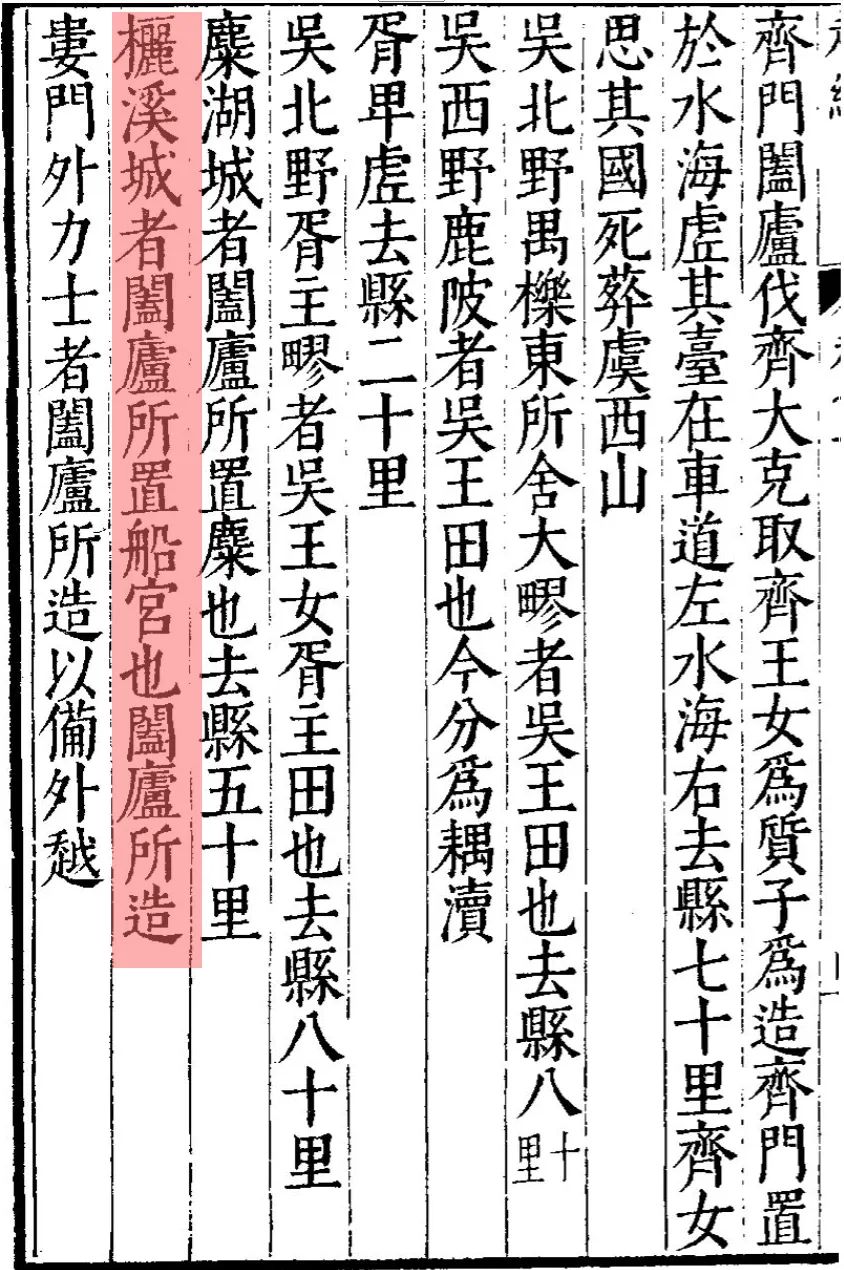 齊門闔廬伐齊大克取齊王女爲質子爲造齊門置
於水海虛其臺在車道左水海右去縣七十里齊女
思其國死葬虞西山
吳北野禺櫟東所舍大疁者吳王田也去縣八十里
吳西野鹿陂者吳王田也今分爲耦瀆
胥卑虛去縣二十里
吳北野胥主疁者吳王女胥主田也去縣八十里
麋湖城者闔廬所置麋也去縣五十里
欐溪城者闔廬所置船宮也闔廬所造
婁門外力士者闔廬所造以備外越